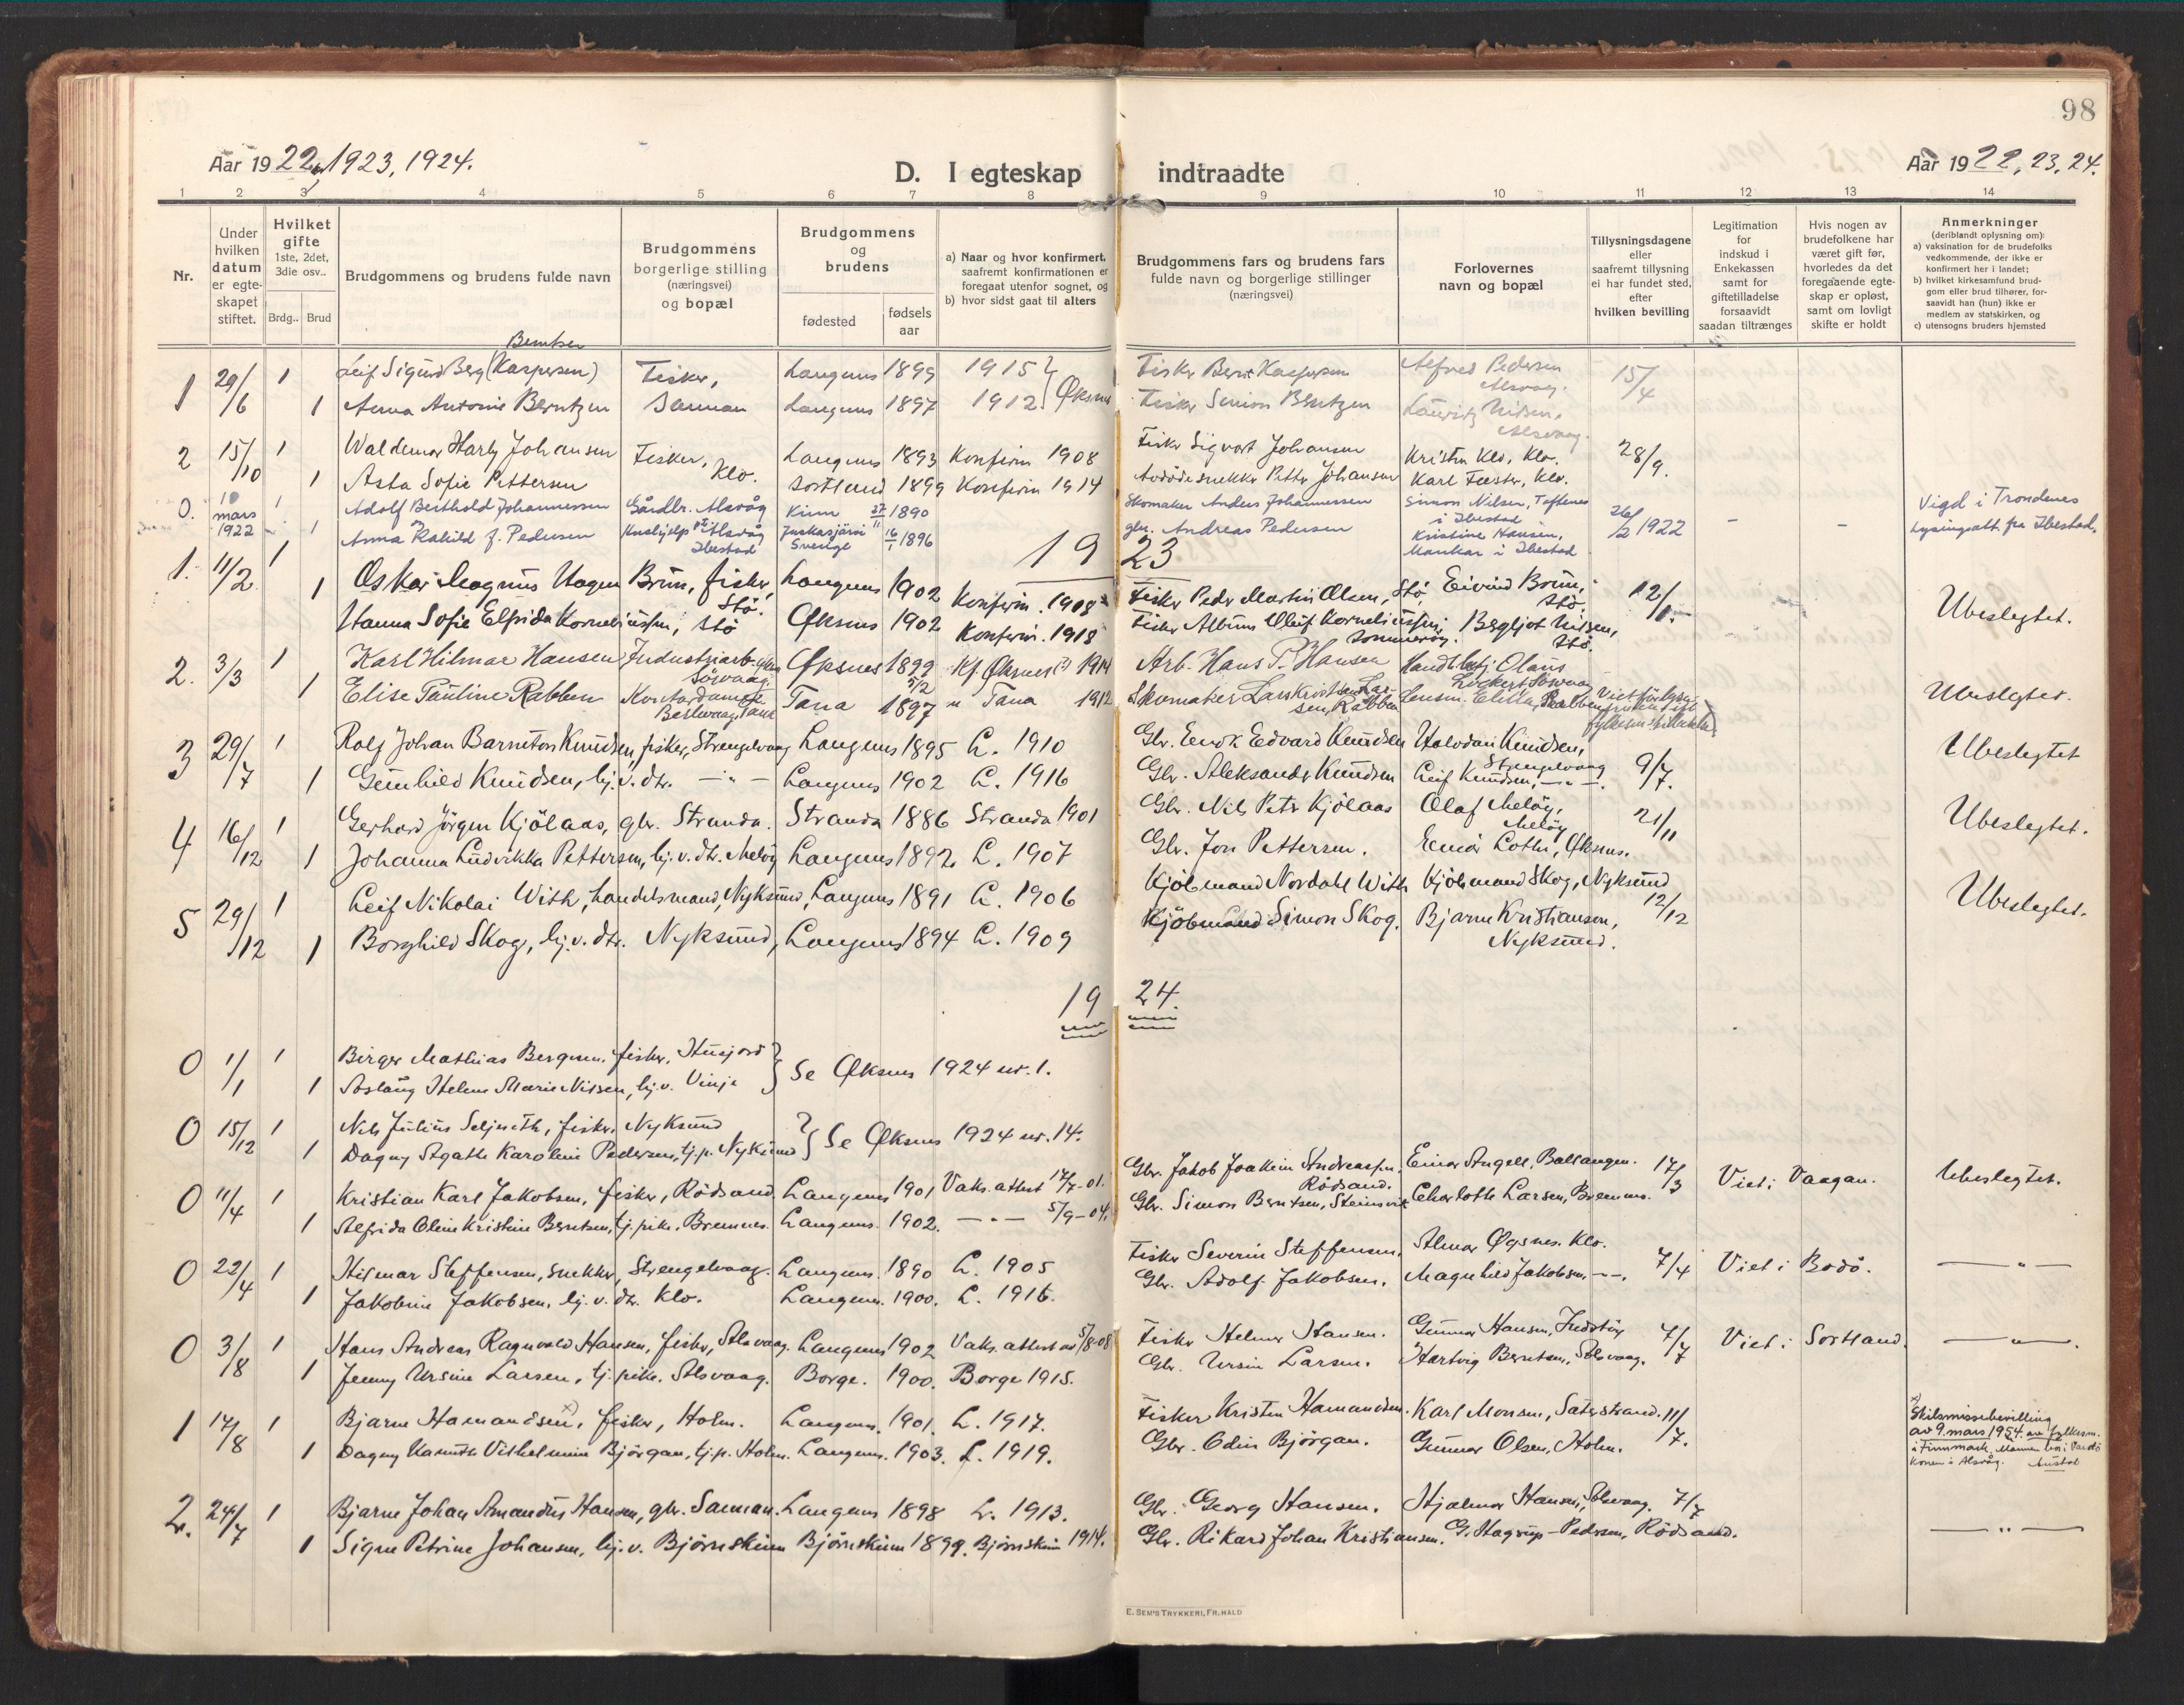 98
Aar 1922, 1923, 1924.
D. I egteskap indtraadte
Aar 1922, 23, 24.
1 2 3 4 5 6 7 8 9 10 11 12 13 14
Nr.
Under hvilken datum er egteskapet stiftet.
Hvilket gifte 1ste, 2det, 3die osv..
Brdg.. Brud
Brudgommens og brudens fulde navn
Brudgommens borgerlige stilling (næringsvei) og bopæl
Brudgommens og brudens
fødested
fødsels aar
a) Naar og hvor konfirmert, saafremt konfirmationen er foregaat utenfor sognet, og
b) hvor sidst gaat til alters
Brudgommens fars og brudens fars fulde navn og borgerlige stillinger (næringsvei)
Forlovernes navn og bopæl
Tillysningsdagene eller saafremt tillysning ei har fundet sted, efter hvilken bevilling
Legitimation for indskud i Enkekassen samt for giftetilladelse forsaavidt saadan tiltrænges
Hvis nogen av brudefolkene har været gift før, hvorledes da det foregaaende egteskap er opløst, samt om lovligt skifte er holdt
Anmerkninger (deriblandt oplysning om):
a) vaksination for de brudefolks vedkommende, der ikke er konfirmert her i landet;
b) hvilket kirkesamfund brudgom eller brud tilhører, forsaavidt han (hun) ikke er medlem av statskirken, og
c) utensogns bruders hjemsted
Berntsen
1 29/6 1 Leif Sigurd Berg (Kaspersen) Fisker, Langenes 1899 1915 } Øksnes Fisker Bernt Kaspersen Alfred Pedersen Alsvaag. 15/4
1 Anna Antonie Berntzen Sannan Langenes 1897 1912 Fisker Simon Berntzen Lauritz Nilsen, Alsvaag.
2 15/10 1 Waldemar Harly Johansen Fisker, Klo. Langenes 1893 Konfirm 1908 Fisker Sigvart Johansen Kristen Klo, Klo. 28/9.
1 Asta Sofie Pettersen Sortland 1899 Konfirm 1914 Petter Johansen Karl Klo.
0. 10 mars 1922 1 Adolf Berthold Johannessen Gårdbr. Alsvåg Kinn 27/11 1890 Skomaker Anders Johannessen Simon Nilsen, Teftenes i Ibestad 26/2 1922 - - Vigd i Trondenes
1 Anna Rakild f. Pedersen Alsvåg Ibestad Jukkasjärvi Sverige 16/1 1896 gbr. Andreas Pedersen Kristine Hansen, i Ibestad Lysingsatt. fra Ibestad.
1923
1. 11/2 1 Oskar Magnus Hagen Brun, fisker, Stö. Langenes 1902 Konfirm. 1908 Fisker Peder Martin Olsen, Stö, Eivind Brun, Stö. 12/1.- Ubeslegtet.
1 Hanna Sofie Elfrida Korneliussen, Stö Øksnes 1902 Konfirm. 1918 Fisker Albius Oluf Korneliussen, Sommeröy. Bergljot Nilsen, Stö.
2. 3/3 1 Karl Hilmar Hansen Industriarb. Sörvaag. Øksnes 1899 Kf. Øksnes 1914 Arb. Hans P. Hansen Handelsbetj. Olaus Lockert Sörvaag Ubeslegtet.
1 Elise Pauline Rabben Kontordame Tana 5/2 1897 " Tana 1912 Skomaker Lars Kristian Larsen, Rabben
3 29/7 1 Rolf Johan Barnston Knudsen, fisker, Strengelvaag Langenes 1895 L. 1910 Gbr. Enok Edvard Knudsen Halvdan Knudsen, Strengelvaag 9/7. Ubeslegtet
1 Gunhild Knudsen, hj. v. dtr. — " — Langenes 1902 L. 1916 Gbr. Aleksander Knudsen Leif Knudsen, — " —.
4 16/12 1 Gerhard Jörgen Kjölaas, gbr. Stranda. Stranda 1886 Stranda 1901 Gbr. Nils Peter Kjölaas Olaf Melöy, Melöy 21/11 Ubeslegtet.
1 Johanna Ludvikka Pettersen, hj. v. dtr. Melöy Langenes 1892 L. 1907 Gbr. Jon Pettersen. Einar Lothe, Øksnes.
5 29/12 1 Leif Nikolai With, handelsmand, Nyksund, Langenes 1891 L. 1906 Kjöbmand Nordahl With Kjöbmand Skog, Nyksund 12/12 Ubeslegtet.
1 Borghild Skog, hj. v. dtr. Nyksund, Langenes 1894 L. 1909 Kjöbmand Simon Skog. Bjarne Kristiansen, Nyksund.
1924.
0 1/1 1 Birger Mathias Bergersen, fisker, Husjord } Se Øksnes 1924 nr. 1.
1 Aslaug Helene Marie Nilsen, hj. v. Vinje
0 15/12 1 Nils Julius Seljeseth, fisker, Nyksund } Se Øksnes 1924 nr. 14.
1 Dagny Agathe Karoline Pedersen, tj. p. Nyksund
0 11/4 1 Kristian Karl Jakobsen, fisker, Rödsand. Langenes 1901 Vaks. attest 17/7-01. Gbr. Jakob Joakim Andreassen, Rödsand. Einar Angell, Ballangen. 17/3 Viet i Vaagan. Ubeslegtet.
1 Alfrida Oline Kristine Berntsen, tj. pike, Bremnes. Langenes. 1902. — " — 5/9-04. Gbr. Simon Berntsen, Steinsvik Charlotte Larsen, Bremnes.
0 22/4 1 Hilmar Steffensen, snekker, Strengelvaag. Langenes. 1890 L. 1905 Fisker Severin Steffensen. Almar Øysnes. Klo. 7/4 Viet i Bodö. — " —
1 Jakobine Jakobsen, hj. v. dtr. Klo. Langenes. 1900. L. 1916. Gbr. Adolf Jakobsen. Magnhild Jakobsen — " —.
0 3/8 1 Hans Andreas Ragnvald Hansen, fisker, Alsvaag. Langenes 1902 Vaks. attest av 5/8-08 Fisker Helmer Hansen. Gunnar Hansen, 7/7 Viet i Sortland. — " —.
1 Jenny Ursine Larsen, tj. pike. Alsvaag. Borge. 1900. Borge 1915. Gbr. Ursin Larsen. Hartvig Berntsen, Alsvaag.
1 17/8 1 Bjarne Hamandsen x), fisker, Holm. Langenes. 1901. L. 1917. Fisker Kristen Hamandsen. Karl Monsen, Säterstrand. 11/7. x) Skilsmissebevilling av 9. mars 1954. av fylkesm. i Finnmark. Mannen bor i Vardö
1 Dagny Kamitte Vilhelmine Björgan, tj. p. Holm. Langenes. 1903. L. 1919. Gbr. Odin Björgan. Gunnar Olsen, Holm. Konen i Alsvåg.
2. 24/7 1 Bjarne Johan Amandus Hansen, gbr. Sannan. Langenes 1898 L. 1913. Gbr. Georg Hansen. Hjalmar Hansen, Alsvaag. 7/7
1 Signe Petrine Johansen, hj. v. Björnskinn Björnskinn 1899. Björnskinn 1914. Gbr. Rikard Johan Kristiansen. G. Hagerup-Pedersen, Rödsand. — " —
E. SEM'S TRYKKERI, FR.HALD